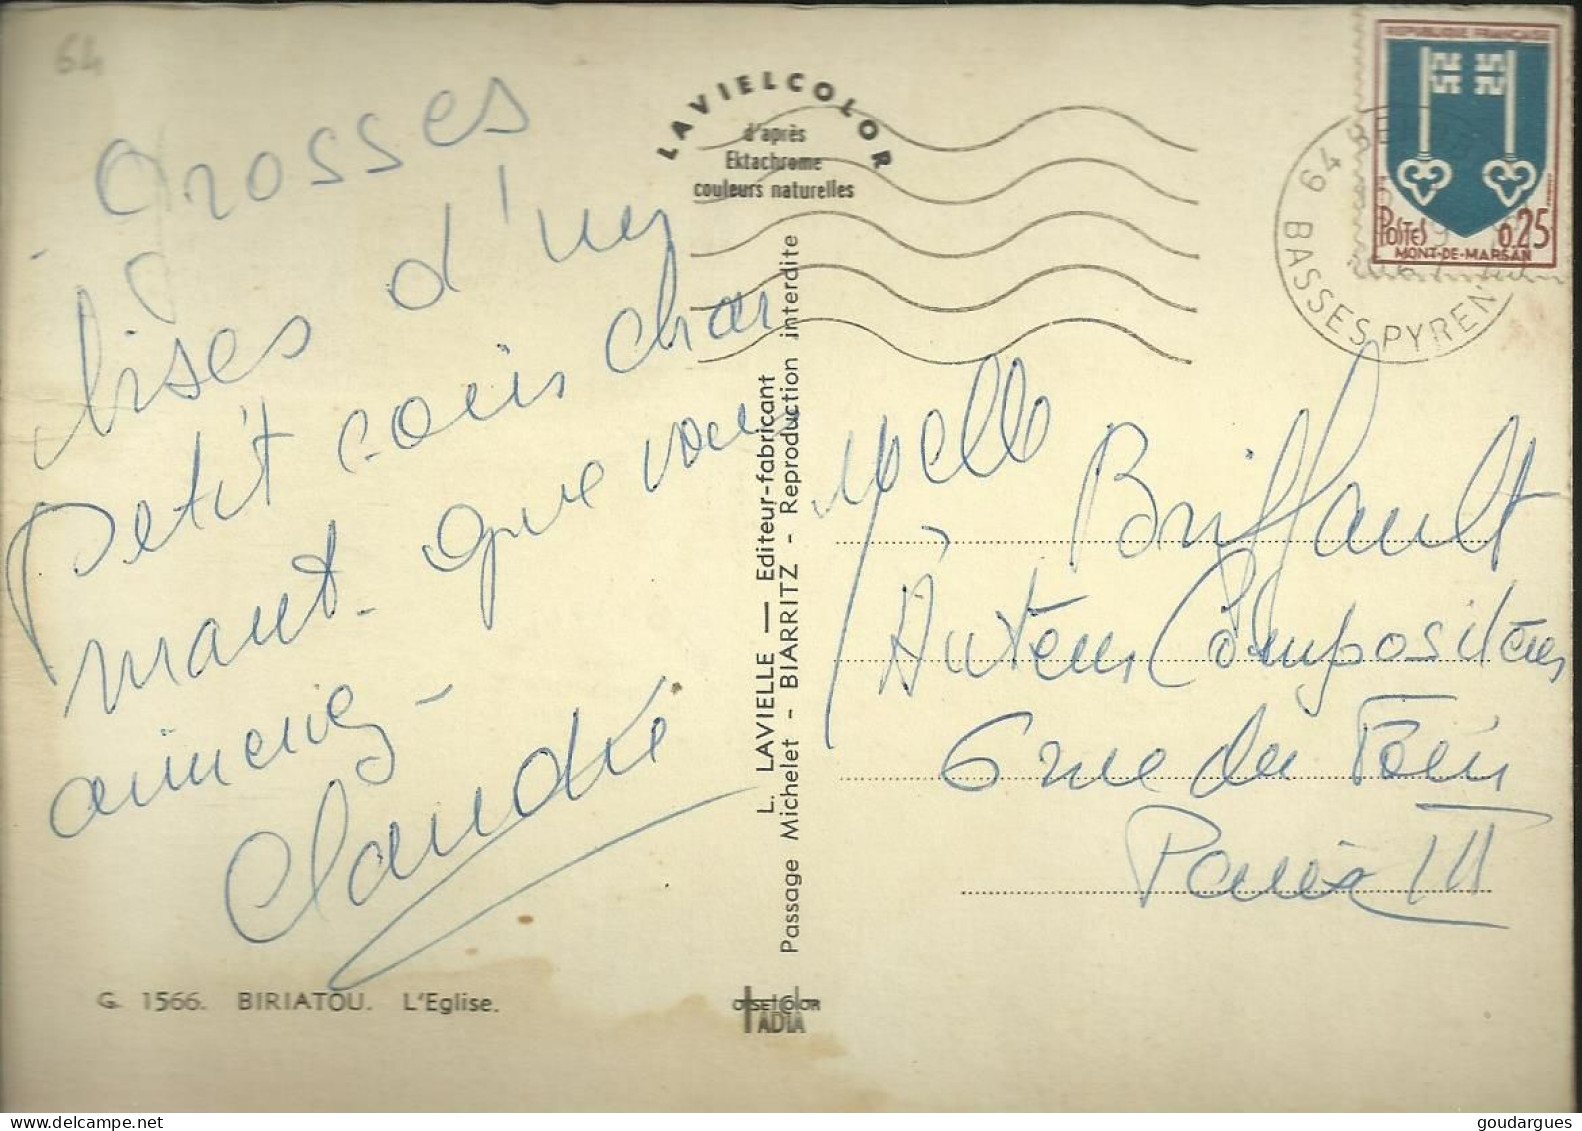 64
Grosses
bises d'un
Petit coin char
mant que vous
aimeriez -
Claudie
G. 1566. BIRIATOU. L'Eglise.
LAVIELCOLOR
d'après
Ektachrome
couleurs naturelles
L. LAVIELLE — Editeur-fabricant
Passage Michelet - BIARRITZ - Reproduction interdite
OFFSET COLOR
IADIA
REPUBLIQUE FRANÇAISE
POSTES 0,25
MONT-DE-MARSAN
64 BASSES PYREN
Melle Briffault
Auteur Compositeur
6 rue du Foin
Paris III
goudargues